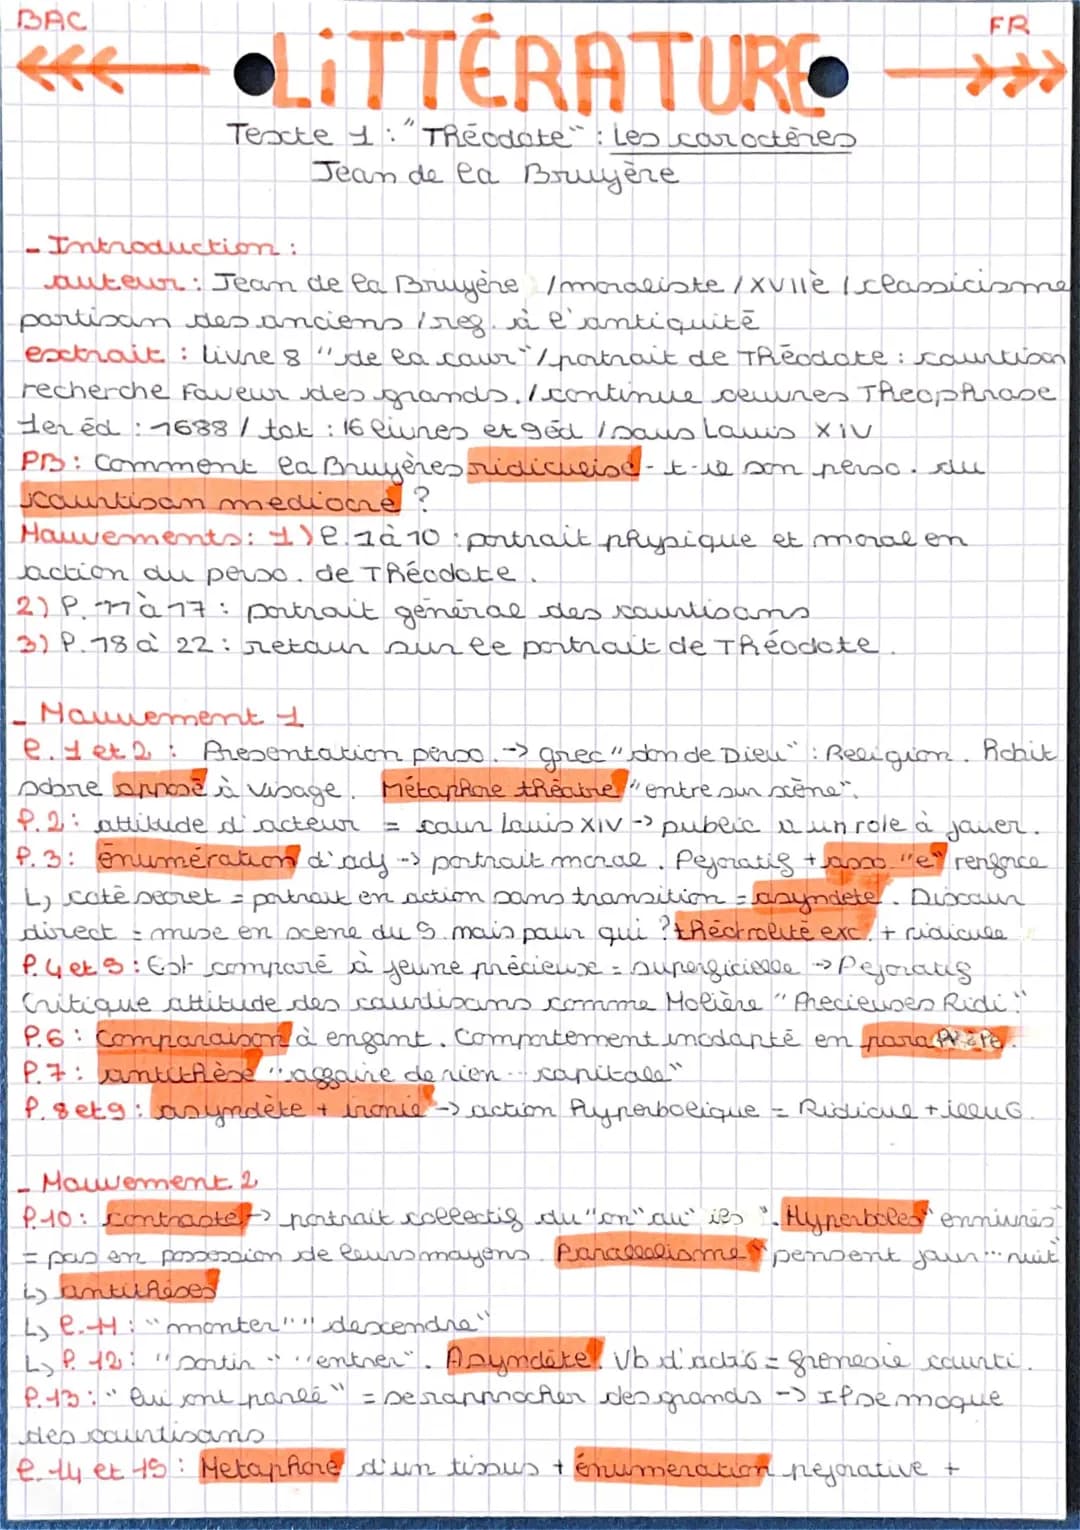 BAC
FR
LiTTÉRATURE
Texte 1 : "Théodote" : Les caractères
Jean de la Bruyère
- Introduction :
auteur : Jean de la Bruyère / moraliste / XVIIè / classicisme
partisan des anciens / reg. à l'antiquité
extrait : livre 8 "de la cour" / portrait de Théodote : courtisan
recherche faveur des grands. / continue oeuvres Theophrase
1er éd : 1688 / tot : 16 livres et 9éd / sous Louis XIV
PB : Comment la Bruyères ridiculise-t-il son perso. du
courtisan mediocre ?
Mouvements : 1) l. 1 à 10 : portrait physique et moral en
action du perso. de Théodote.
2) l. 11 à 17 : portrait général des courtisans
3) l. 18 à 22 : retour sur le portrait de Théodote.
- Mouvement 1
l. 1 et 2 : Presentation perso. -> grec "don de Dieu" : Religion. Habit
sobre opposé à visage. Métaphore théatre "entre sur scène".
l. 2 : attitude d'acteur = cour Louis XIV -> public a un role à jouer.
l. 3 : énumération d'adj -> portrait moral. Pejoratif + asso. "e" renforce
↳ coté secret = portrait en action sans transition = asyndete. Discour
direct = mise en scene du S. mais pour qui ? théâtralité exc. + ridicule
l. 4 et 5 : Est comparé à jeune précieuse = superficielle -> Pejoratif
Critique attitude des courtisans comme Molière "Precieuses Ridi."
l. 6 : Comparaison à enfant. Comportement inadapté en
l. 7 : antithèse "affaire de rien ... capitale"
l. 8 et 9 : asyndète + ironie -> action hyperbolique = Ridicul + illu
- Mouvement 2
l. 10 : contraste -> portrait collectif du "on" au "ils". Hyperboles "enniuvrés"
= pas en possession de leurs moyens. Parallelisme "pensent jour ... nuit"
↳ antithèses
↳ l. 11 : "monter" "descendre"
↳ l. 12 : "sortir" "entrer". Asyndète. Vb d'actio = frenesie courti.
l. 13 : "lui ont parlé" = se rapprocher des grands -> Il se moque
des courtisans
l. 14 et 15 : Metaphore d'un tissus + énumeration pejorative +